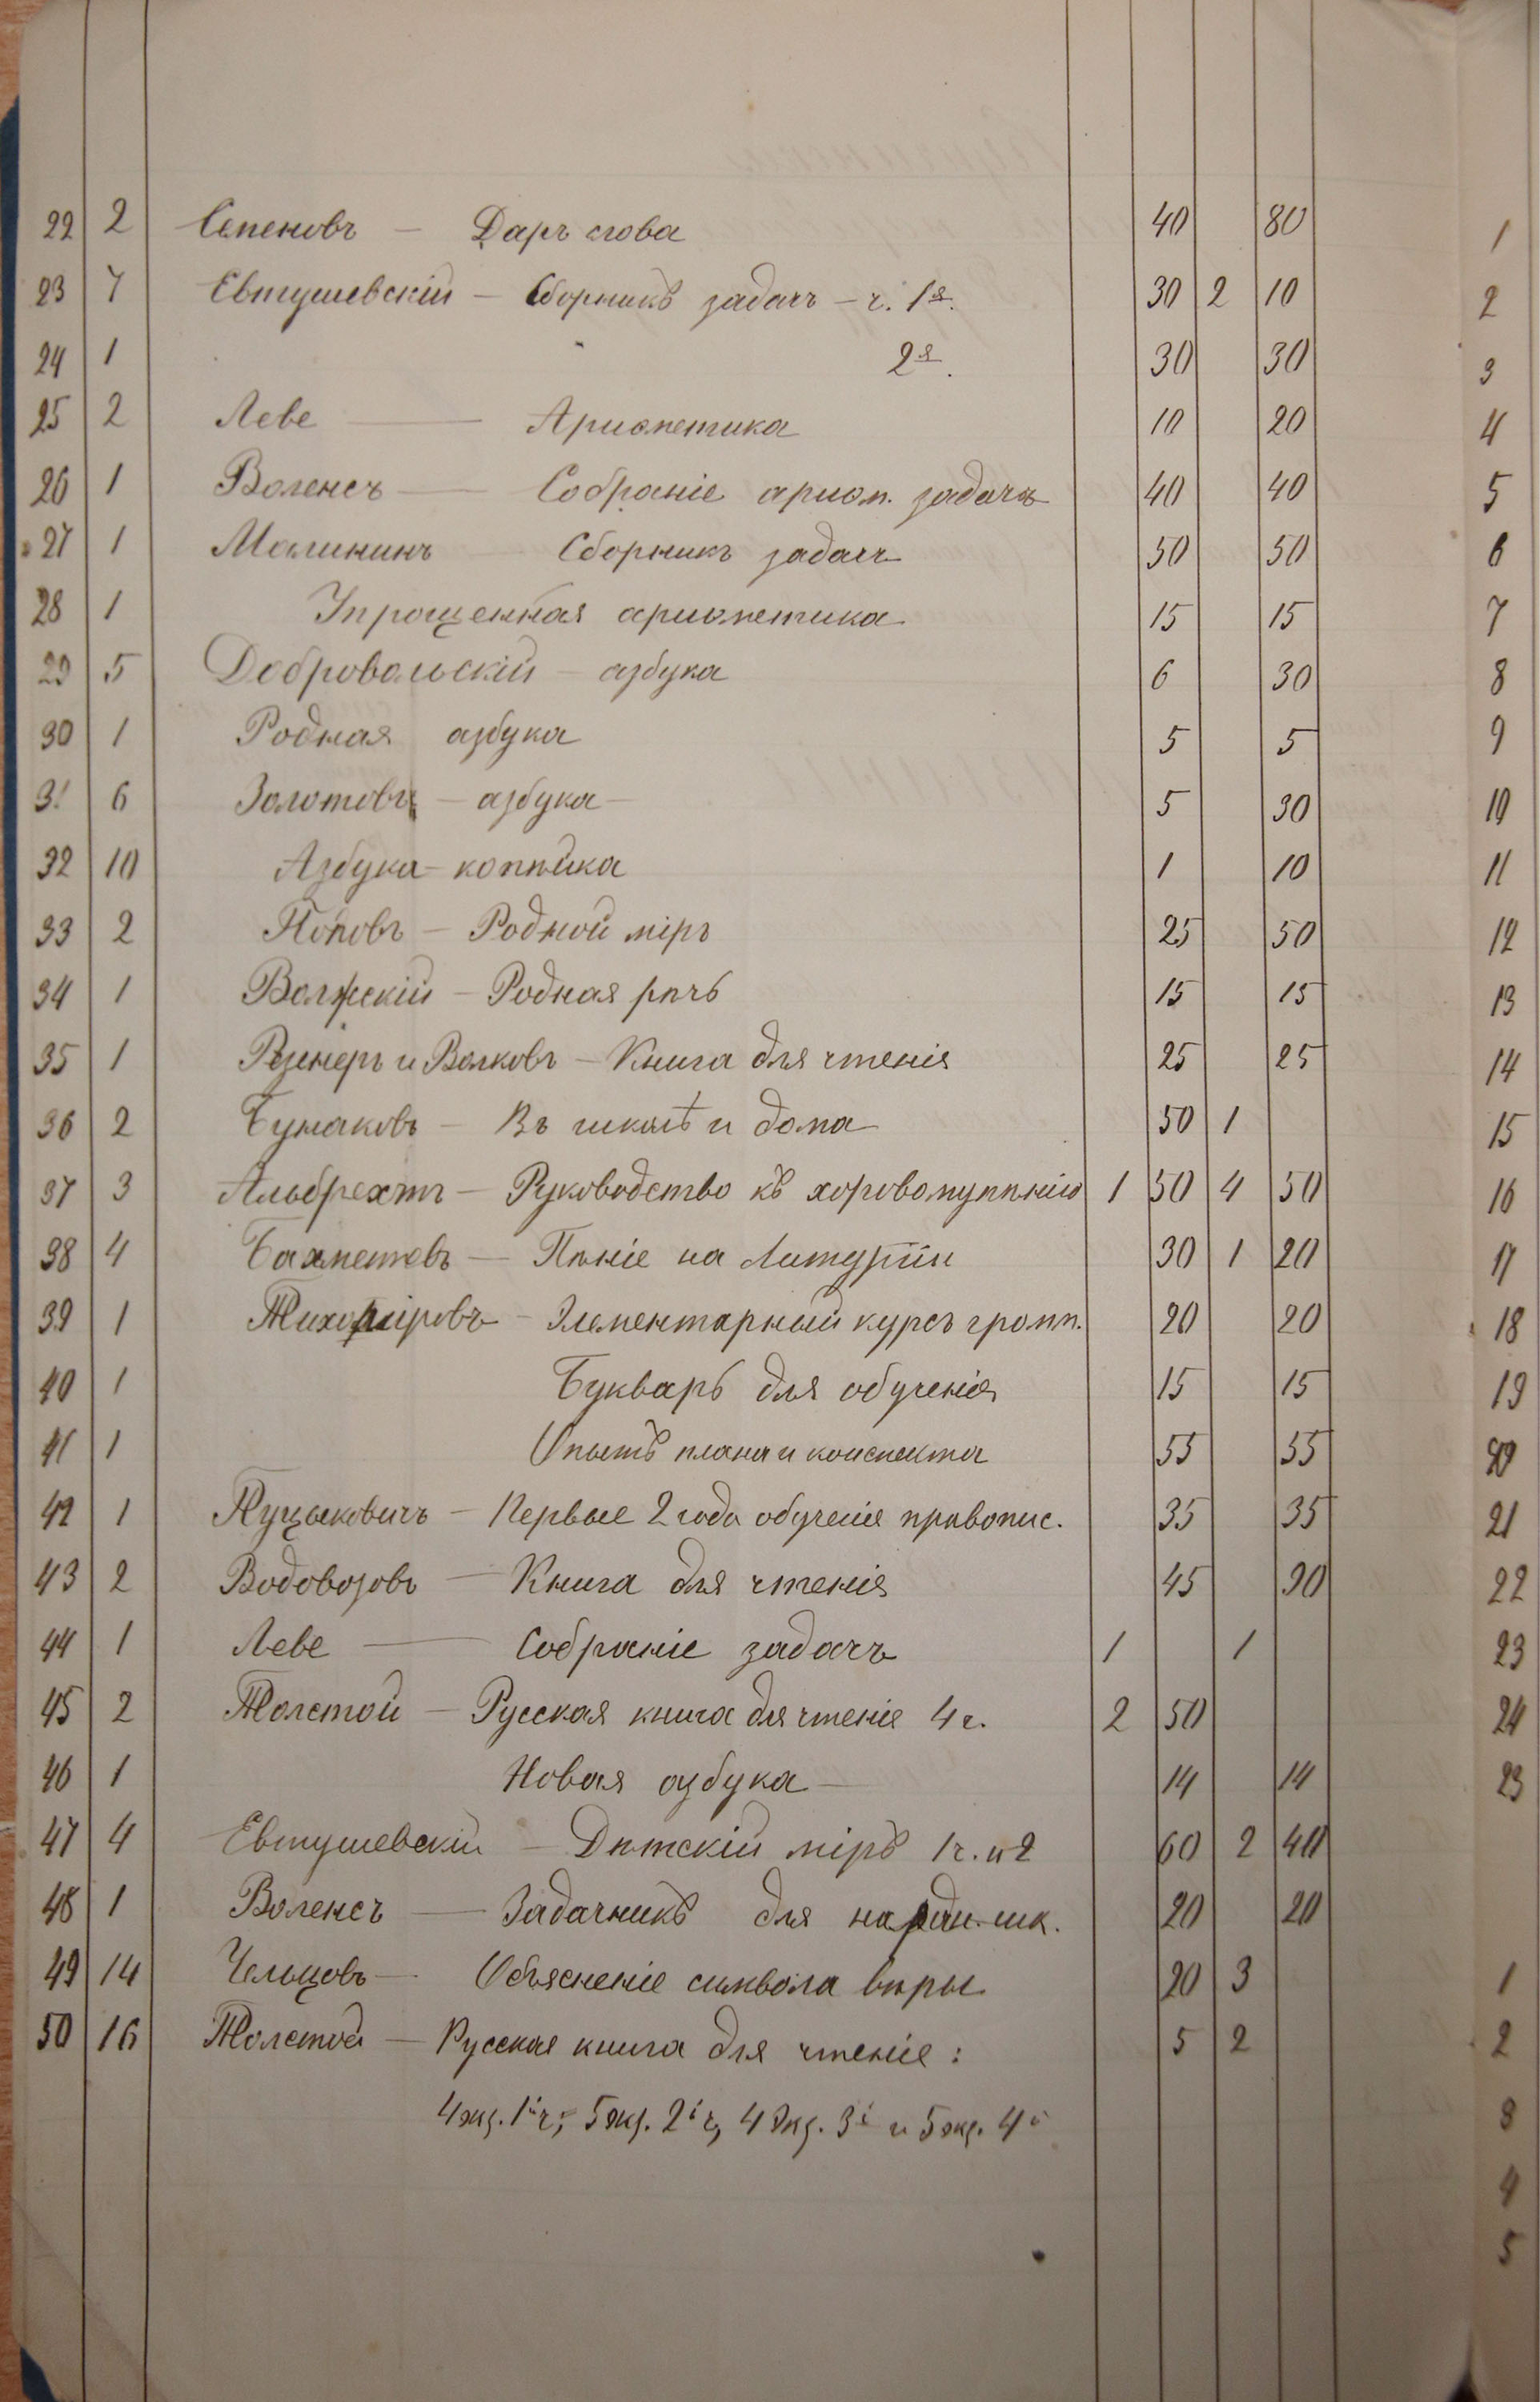 22 2 Семеновъ — Даръ слова 40 80 1
23 7 Евтушевскій — Сборникъ задачъ — ч. 1я. 30 2 10 2
24 1 2я. 30 30 3
25 2 Леве — Ариѳметика 10 20 4
26 1 Воленсъ — Собраніе ариѳм. задачъ 40 40 5
27 1 Малининъ Сборникъ задачъ 50 50 6
28 1 Упрощенная ариѳметика 15 15 7
29 5 Добровольскій — азбука 6 30 8
30 1 Родная азбука 5 5 9
31 6 Золотовъ — азбука — 5 30 10
32 10 Азбука — копѣйка 1 10 11
33 2 Поповъ — Родной міръ 25 50 12
34 1 Волжскій — Родная рѣчь 15 15 13
35 1 Рознеръ и Волковъ — Книга для чтенія 25 25 14
36 2 Бунаковъ — Въ школѣ и дома 50 1 15
37 3 Альбрехтъ — Руководство къ хоровому пѣнію 1 50 4 50 16
38 4 Бахметевъ — Пѣніе на Литургіи 30 1 20 17
39 1 Тихоміровъ — Элементарный курсъ грамм. 20 20 18
40 1 Букварь для обученія 15 15 19
41 1 Опытъ плана и конспекта 55 55 20
42 1 Пуцыковичъ — Первые 2 года обученія правопис. 35 35 21
43 2 Водовозовъ — Книга для чтенія 45 90 22
44 1 Леве — Собраніе задачъ 1 1 23
45 2 Толстой — Русская книга для чтенія 4 ч. 2 50 24
46 1 Новая азбука — 14 14 23
47 4 Евтушевскій — Дѣтскій міръ 1 ч. и 2 60 2 40
48 1 Воленсъ — Задачникъ для народн. шк. 20 20
49 14 Чельцовъ — Объясненіе символа вѣры 20 3 1
50 16 Толстой — Русская книга для чтенія: 5 2 2
4 экз. 1й ч; 5 экз. 2й ч, 4 экз. 3й и 5 экз. 4й 3
4
5